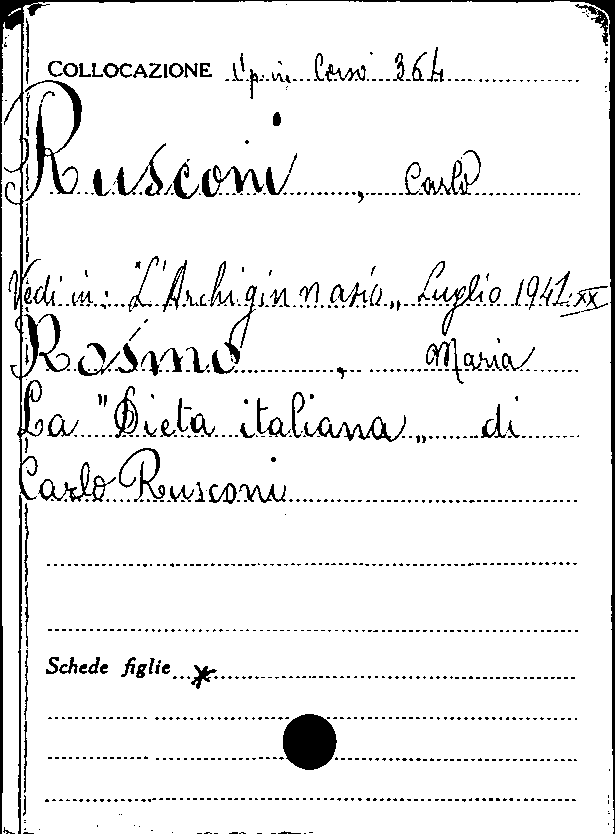 COLLOCAZIONE Op. in Corso 364
Rusconi, Carlo
Vedi in: "L'Archiginnasio„ Luglio 1941-XX
Rosmo, Maria
La "Dieta italiana„ di
Carlo Rusconi
Schede figlie *